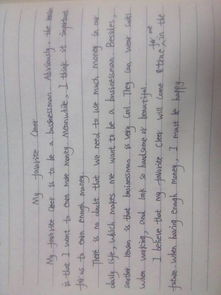 My favorite Career
My favorite Career is to be a businessman. Obviously, the main
is that I want to earn more money. Meanwhile, I think it important
for us to earn enough money.
There is no doubt that we need to use much money in our
daily life, which makes me want to be a businessman. Besides,
another reason is that businessman is very cool. They can wear suit
when working, and look so handsome or beautiful.
I believe that my favorite Career will come true in the
future when having enough money, I must be happy